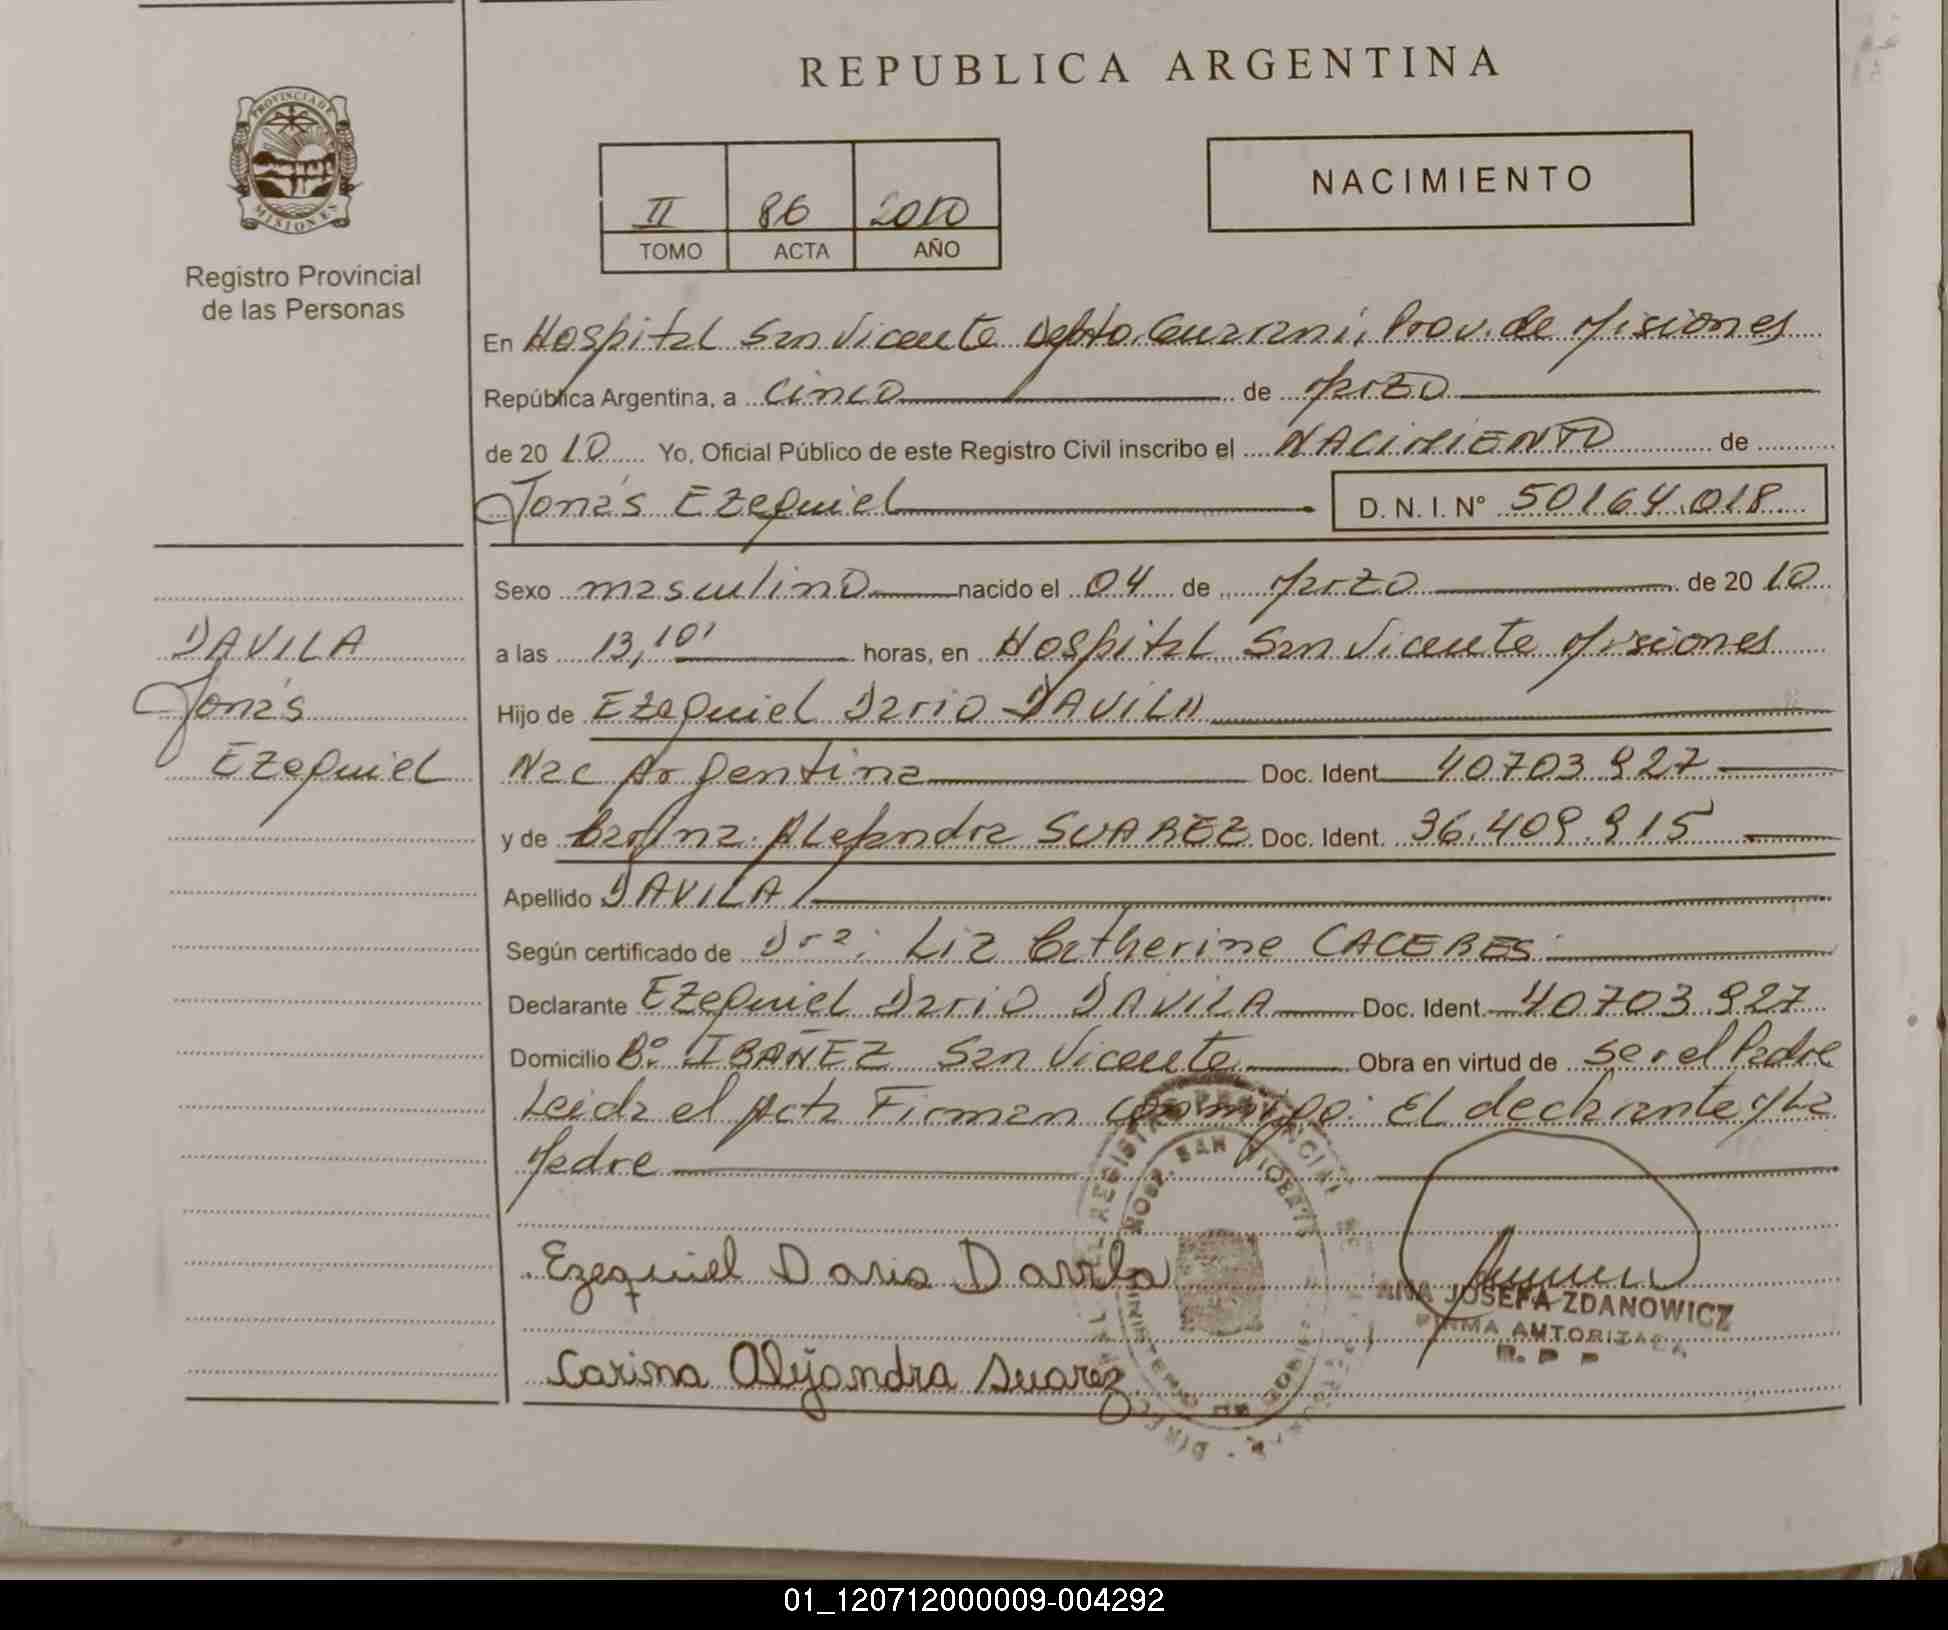 REPUBLICA ARGENTINA
PROVINCIA DE
MISIONES
Registro Provincial
de las Personas
II 86 2010
TOMO ACTA AÑO
NACIMIENTO
En Hospital San Vicente Depto. Guarani, Prov. de Misiones
República Argentina, a cinco de Marzo
de 20 10 Yo, Oficial Público de este Registro Civil inscribo el NACIMIENTO de
Jonás Ezequiel D. N. I. Nº 50164.018
Sexo masculino nacido el 04 de Marzo de 20 10
a las 13,10' horas, en Hospital San Vicente Misiones
Hijo de Ezequiel Dario DAVILA
Nac Argentina Doc. Ident. 40703.927
y de Carina Alejandra SUAREZ Doc. Ident. 36.409.915
Apellido DAVILA
Según certificado de Dra: Liz Catherine CACERES
Declarante Ezequiel Dario DAVILA Doc. Ident. 40703.927
Domicilio Bº IBAÑEZ San Vicente Obra en virtud de ser el Padre
Leida el Acta Firman conmigo: El declarante y La
Madre
DAVILA
Jonás
Ezequiel
Ezequiel Dario Davila
Carina Alejandra Suarez
ANA JOSEFA ZDANOWICZ
FIRMA AUTORIZADA
R. P P
01_120712000009-004292